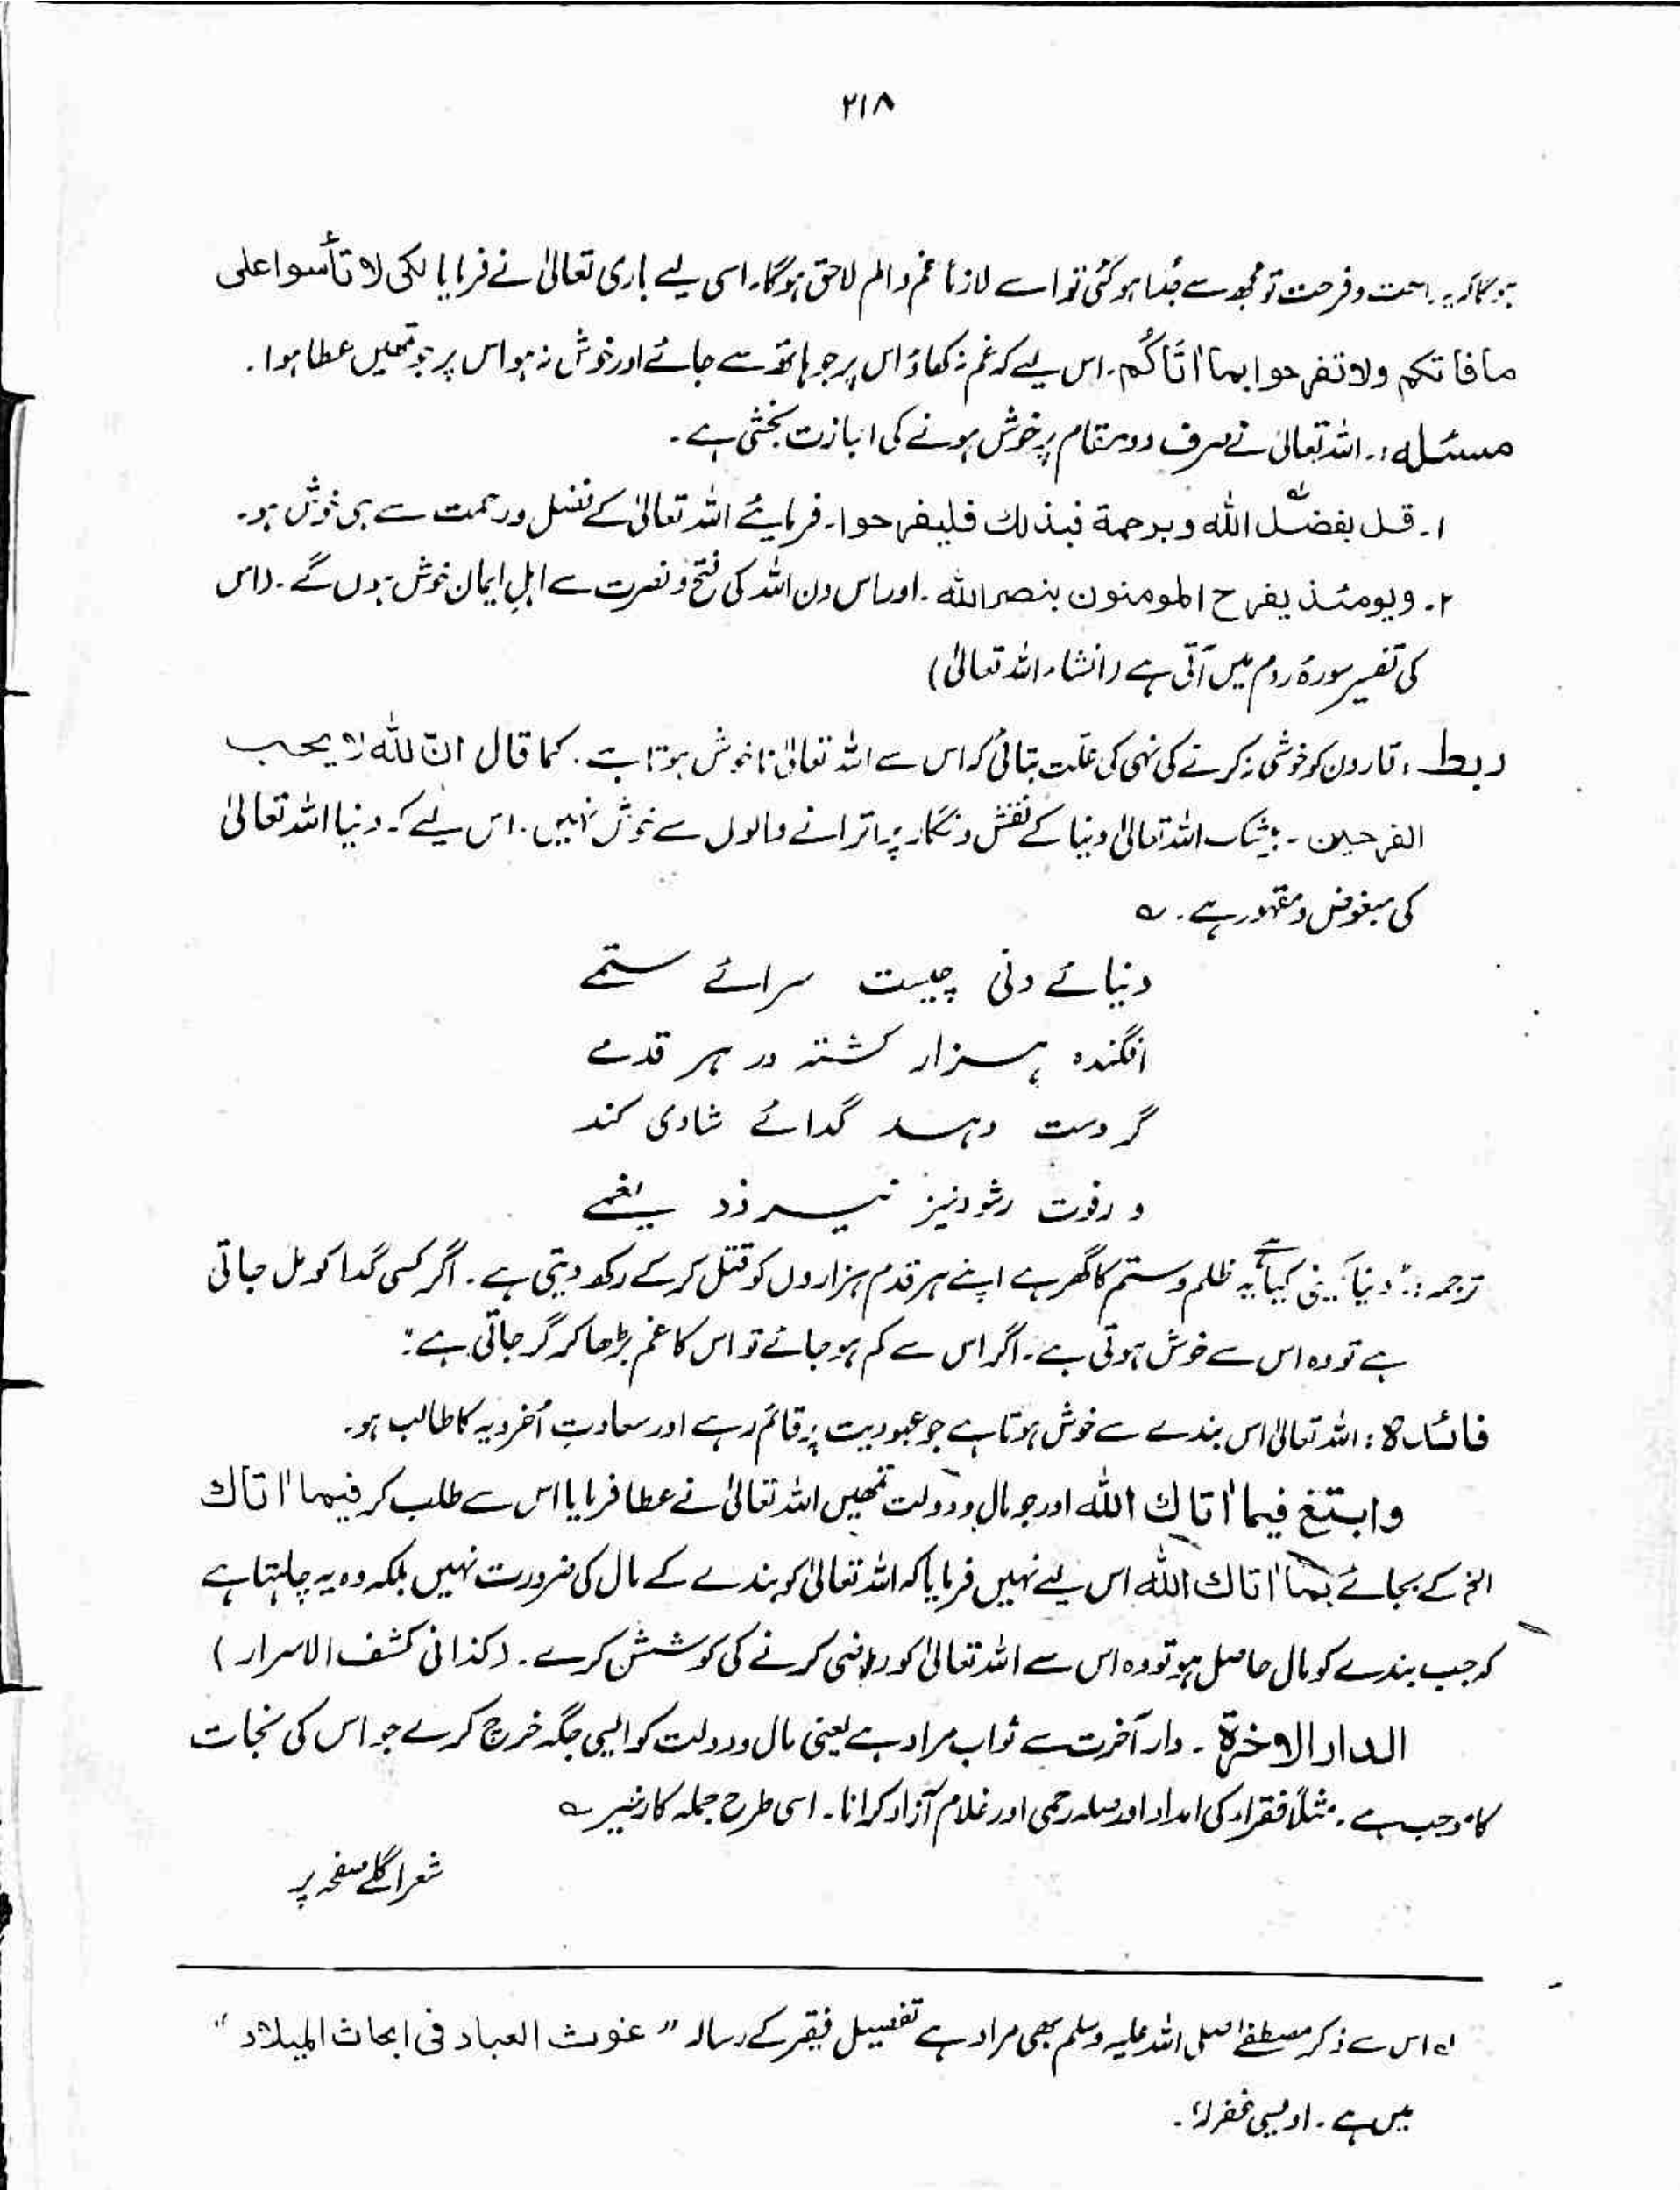 ۲۱۸
ہوگا کہ یہ راحت و فرحت تو مجھ سے جُدا ہو گئی تو اسے لازماً غم و الم لاحق ہوگا۔ اسی لیے باری تعالیٰ نے فرمایا لکی لا تأسوا علی
مافاتکم ولا تفرحوا بما اٰتاکُم۔ اس لیے کہ غم نہ کھاؤ اس پر جو ہاتھ سے جائے اور خوش نہ ہو اس پر جو تمھیں عطا ہوا۔
مسئلہ:۔ اللہ تعالیٰ نے صرف دو مقام پر خوش ہونے کی اجازت بخشی ہے۔
۱۔ قل بفضل اللہ وبرحمة فبذلك فلیفرحوا۔ فرمائیے اللہ تعالیٰ کے فضل و رحمت سے ہی خوش ہو۔
۲۔ ویومئذ یفرح المومنون بنصر اللہ۔ اور اس دن اللہ کی فتح و نصرت سے اہلِ ایمان خوش ہوں گے۔ (اس
کی تفسیر سورۂ روم میں آتی ہے (انشاء اللہ تعالیٰ)
ربط: قارون کو خوشی نہ کرنے کی نہی کی علّت بتائی کہ اس سے اللہ تعالیٰ ناخوش ہوتا ہے۔ کما قال انّ اللہ لا یحب
الفرحین۔ بیشک اللہ تعالیٰ دنیا کے نقش و نگار پر اترانے والوں سے خوش نہیں۔ اس لیے کہ دنیا اللہ تعالیٰ
کی مبغوض و مقہور ہے۔ ؎
دنیائے دنی چیست سرائے ستمے
افگندہ ہزار کشتہ در ہر قدمے
گر دست دہد گدائے شادی کند
ور فوت شود نیز نیرزد بغمے
ترجمہ:۔ دنیا یعنی کیا ہے یہ ظلم و ستم کا گھر ہے اپنے ہر قدم ہزاروں کو قتل کر کے رکھ دیتی ہے۔ اگر کسی گدا کو مل جاتی
ہے تو وہ اس سے خوش ہوتی ہے۔ اگر اس سے کم ہو جائے تو اس کا غم بڑھا کر گر جاتی ہے:
فائدہ: اللہ تعالیٰ اس بندے سے خوش ہوتا ہے جو عبودیت پر قائم رہے اور سعادتِ اُخرویہ کا طالب ہو۔
وابتغ فیما اٰتاك اللہ اور جو مال و دولت تمھیں اللہ تعالیٰ نے عطا فرمایا اس سے طلب کر فیما اٰتاك
الخ کے بجائے بما اٰتاك اللہ اس لیے نہیں فرمایا کہ اللہ تعالیٰ کو بندے کے مال کی ضرورت نہیں بلکہ وہ یہ چاہتا ہے
کہ جب بندے کو مال حاصل ہو تو وہ اس سے اللہ تعالیٰ کو راضی کرنے کی کوشش کرے۔ (کذا فی کشف الاسرار)
الدار الاخرة۔ دار آخرت سے ثواب مراد ہے یعنی مال و دولت کو ایسی جگہ خرچ کرے جو اس کی نجات
کا موجب ہے۔ مثلاً فقراء کی امداد اور صلہ رحمی اور غلام آزاد کرانا۔ اسی طرح جملہ کارِ خیر ؎
شعر اگلے صفحہ پر
لہ اس سے ذکر مصطفےٰ صلی اللہ علیہ وسلم بھی مراد ہے تفصیل فقیر کے رسالہ "غوث العباد فی ابحاث المیلاد"
میں ہے۔ اویسی غفرلہٗ۔